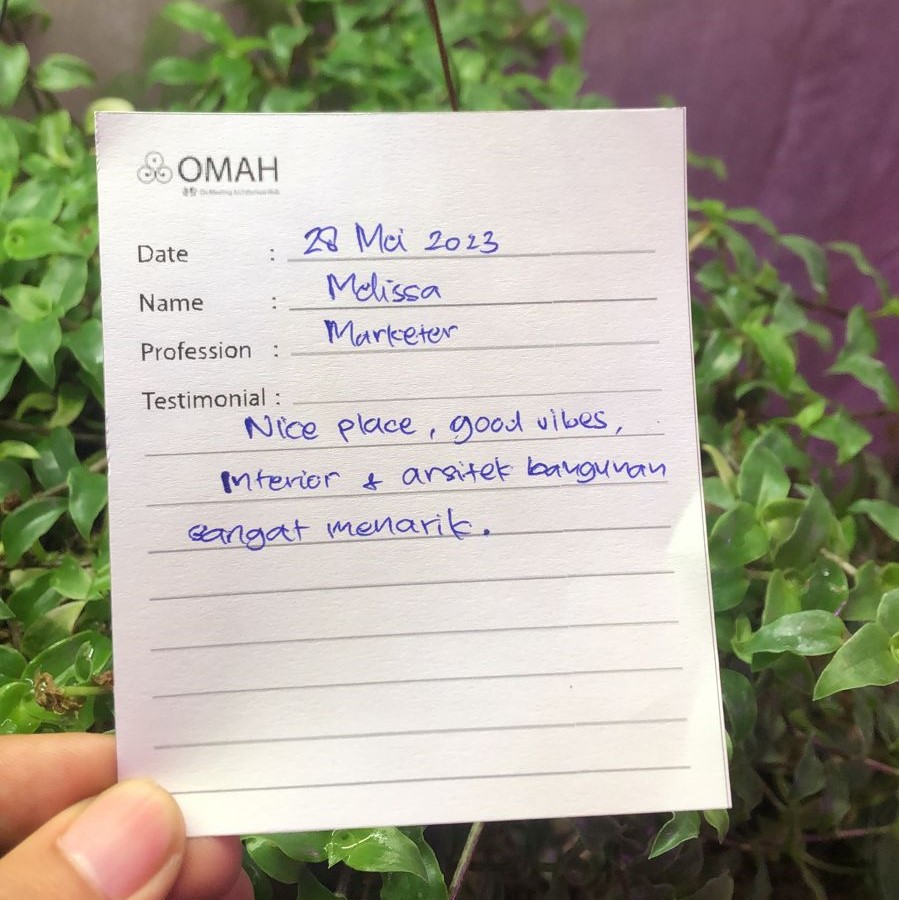 OMAH
Date : 28 Mei 2023
Name : Melissa
Profession : Marketer
Testimonial :
Nice place, good vibes,
Interior & arsitek bangunan
sangat menarik.